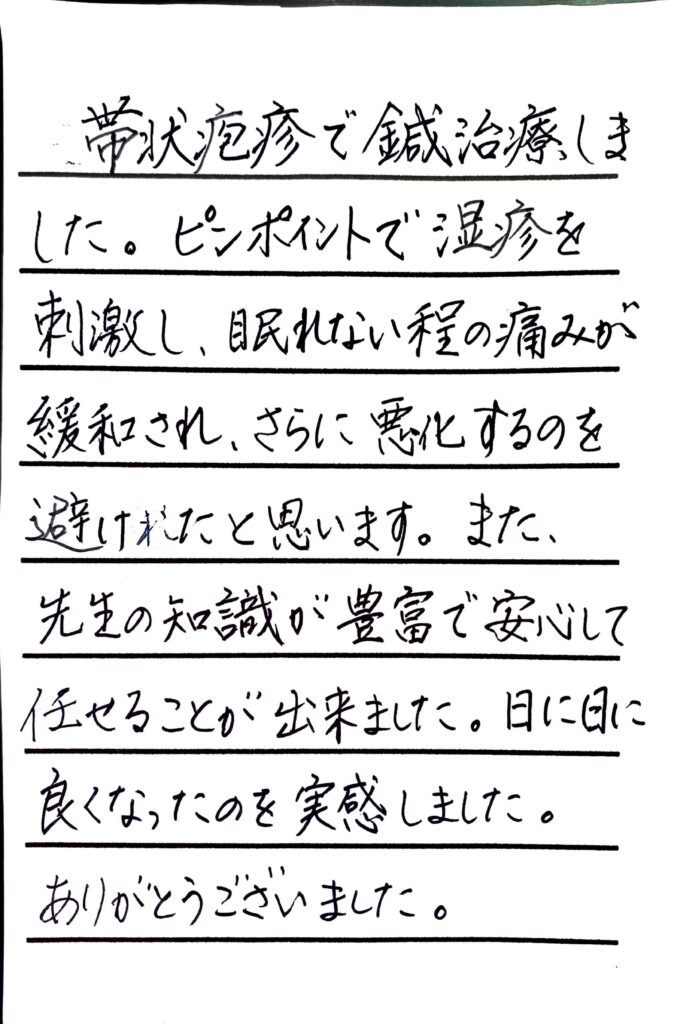 帯状疱疹で鍼治療しま
した。ピンポイントで湿疹を
刺激し、眠れない程の痛みが
緩和され、さらに悪化するのを
避けれたと思います。また、
先生の知識が豊富で安心して
任せることが出来ました。日に日に
良くなったのを実感しました。
ありがとうございました。